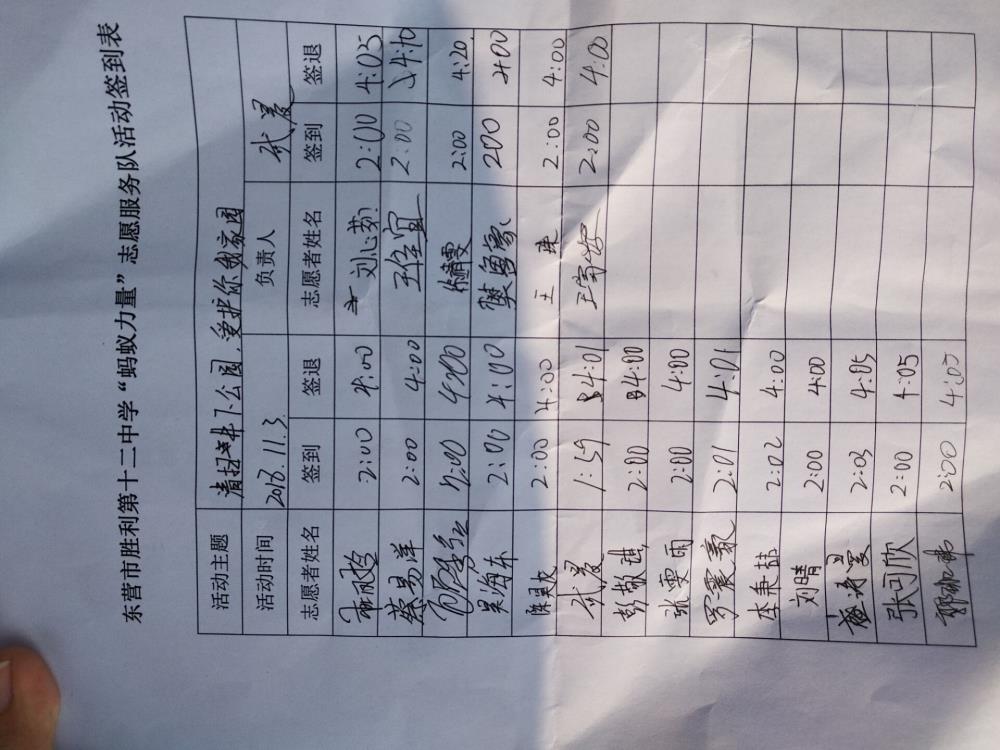 东营市胜利第十二中学“蚂蚁力量”志愿服务队活动签到表
活动主题 清扫井下公园,爱护你我家园
活动时间 2018.11.3 负责人 武晨
志愿者姓名 签到 签退 志愿者姓名 签到 签退
2:00 4:00 刘心茹 2:00 4:05
蔡易洋 2:00 4:00 2:00 4:10
2:00 4:00 2:00 4:20
吴海东 2:00 4:00 200 400
2:00 4:00 王 2:00 4:00
武晨 1:59 4:01 2:00 4:00
彭敬琪 2:00 4:00
张雯雨 2:00 4:00
罗震毅 2:01 4:01
李秉喆 2:02 4:00
刘晴 2:00 4:00
2:03 4:05
张可欣 2:00 4:05
2:00 4:05